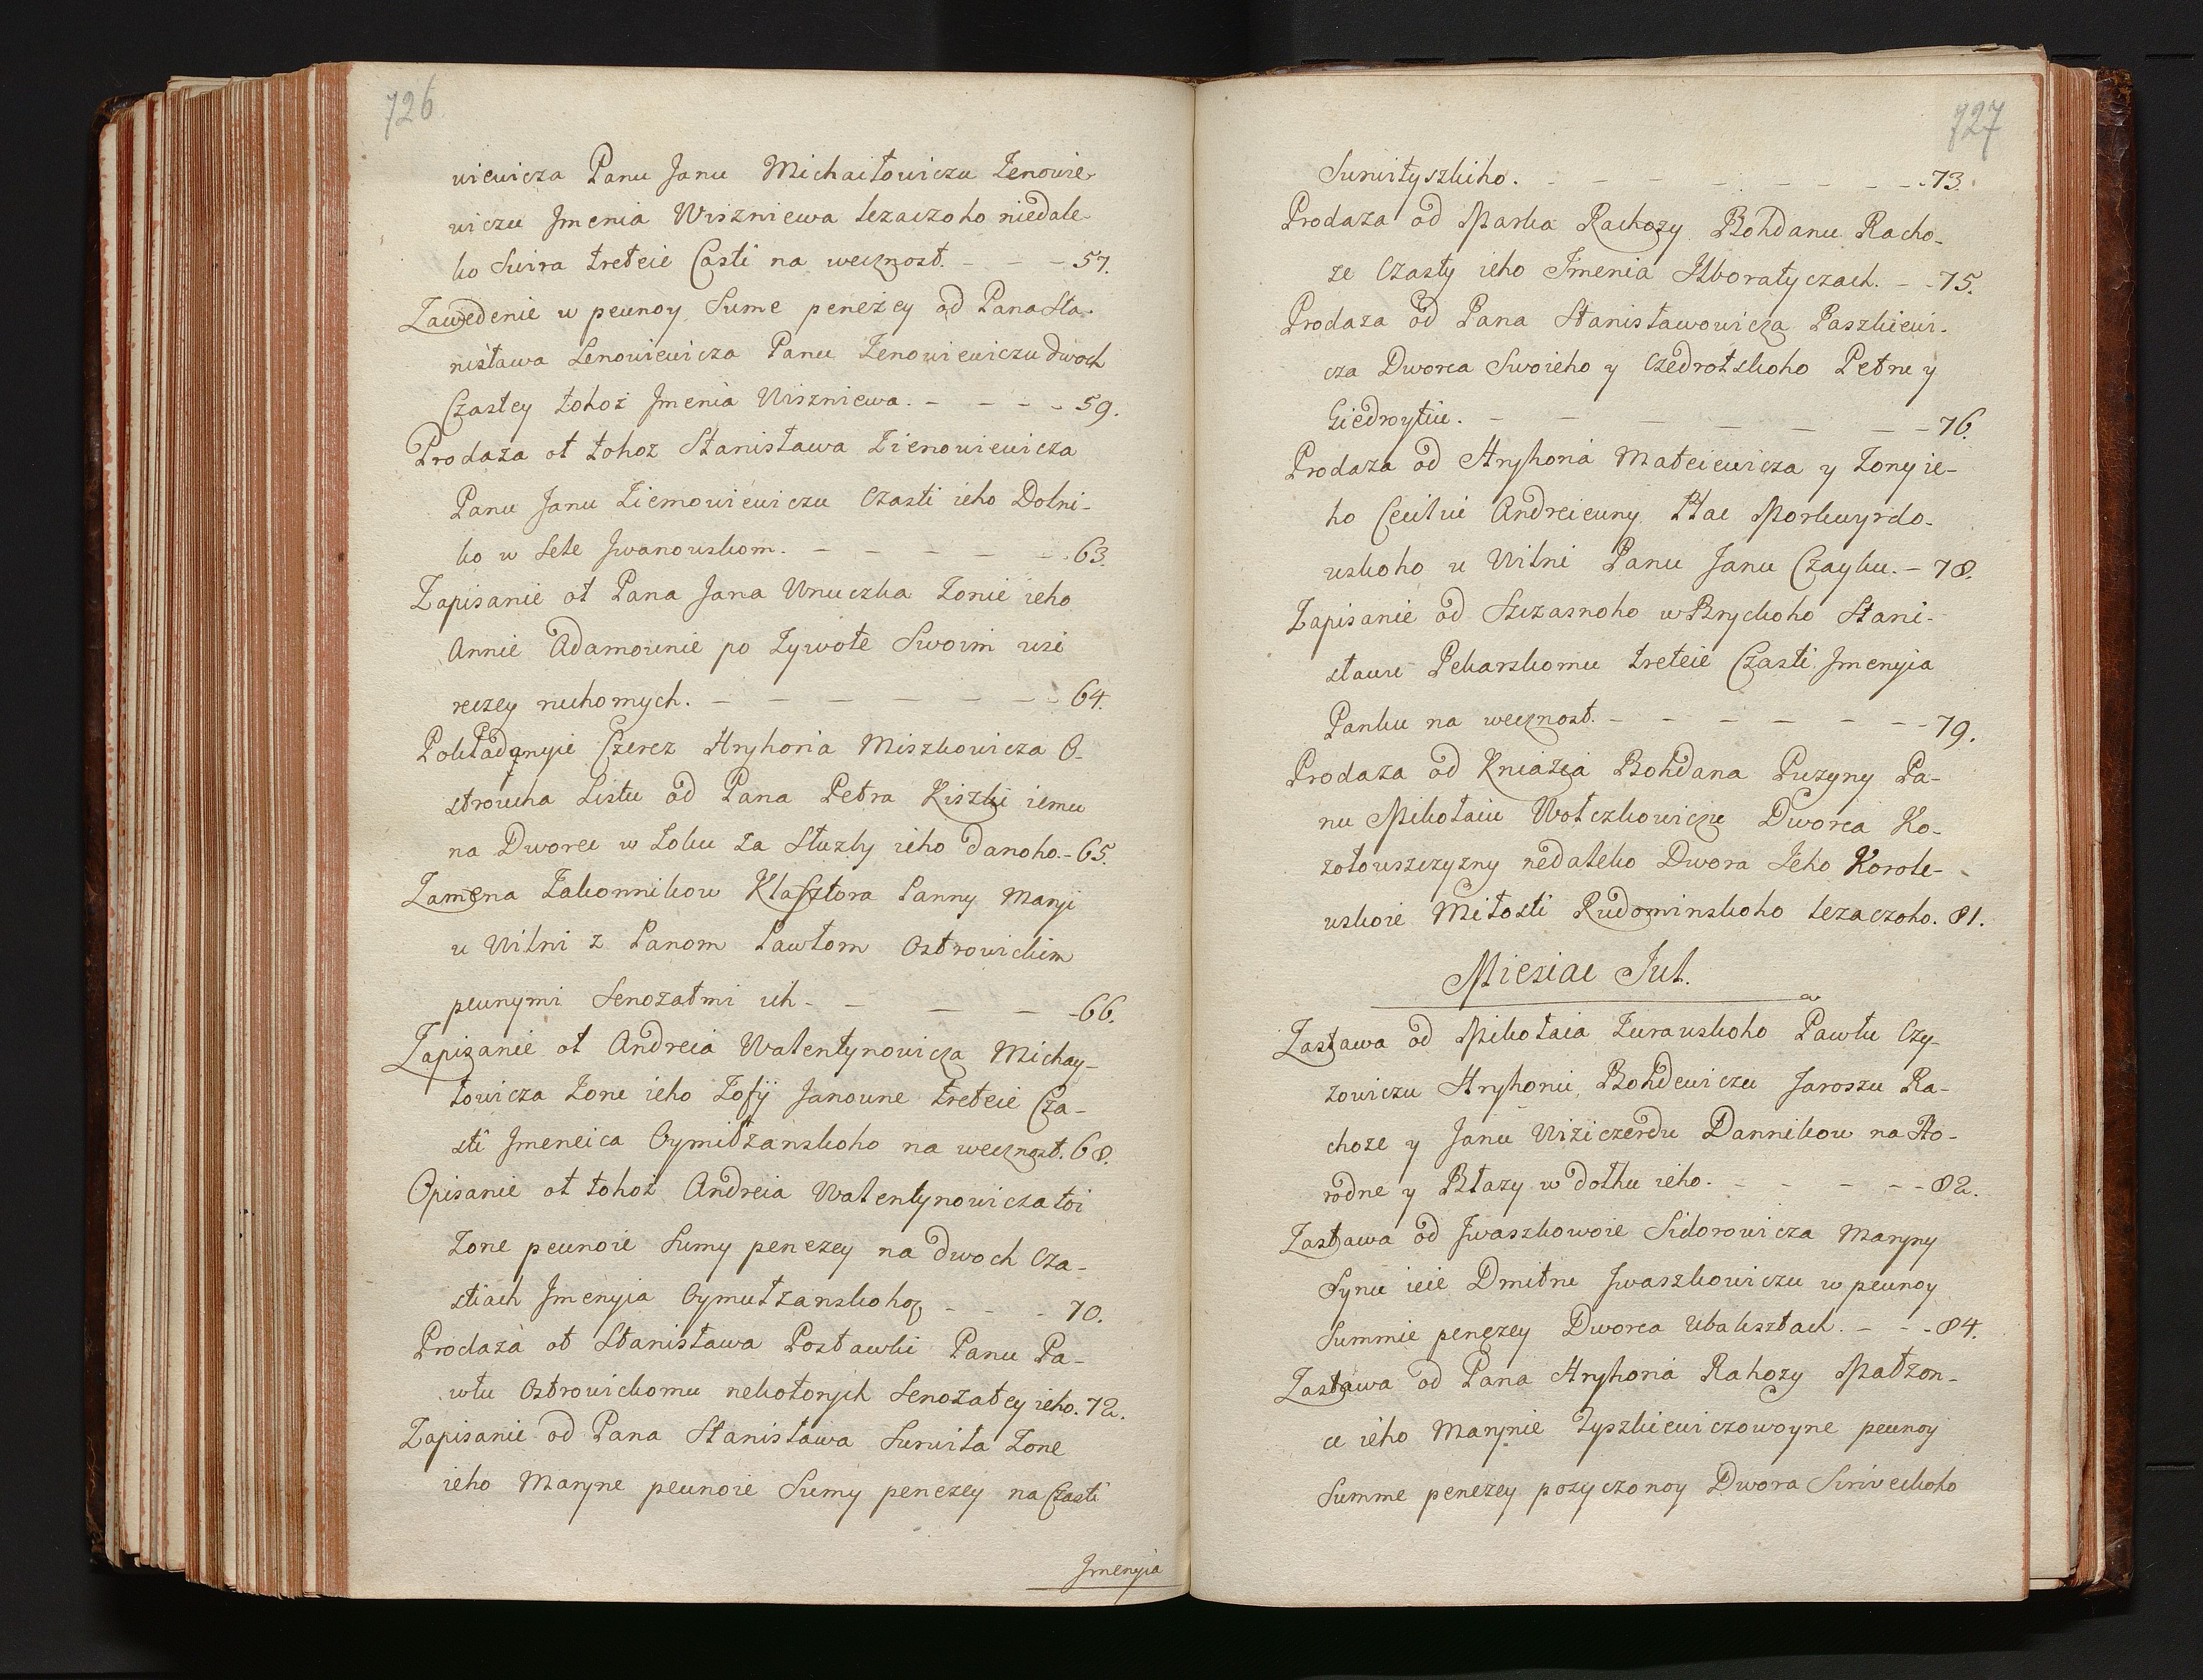 726
wiewicza Panu Janu Michaiłowiczu Zenowie-
wiczu Jmenia Wiszniewa lezaczoho niedale-
ko Swira treteie Casti na wecznost. - - - 57.
Zawedenie w pewnoy Sume penezey od Pana Sta-
nisława Zenowiewicza Panu Zenowiewiczu dwoch
Czastey tohoż Jmenia Wiszniewa. - - - - 59.
Prodaża ot tohoż Stanisława Zienowiewicza
Panu Janu Ziemowiewiczu Czasti ieho Dolni-
ko w Sele Jwanowskom. - - - - - 63.
Zapisanie ot Pana Jana Wnuczka Zonie ieho
Annie Adamownie po Zywote Swoim wsi
reczey ruchomych. - - - - - - 64.
Pokładanyie Czerez Hryhoria Miszkowicza O-
strowcha Listu od Pana Petra Kiszki iemu
na Dworec w Zoku za Służby ieho danoho. - 65.
Zamena Zakonnikow Klasztora Panny Maryi
u Wilni z Panom Pawłom Ostrowickim
pewnymi Senozatmi ich - - - - 66.
Zapisanie ot Andreia Walentynowicza Michay-
łowicza Zone ieho Zofij Janowne treteie Cza-
sti Jmeneica Oymidzanskoho na wecznost. 68.
Opisanie ot tohoż Andreia Walentynowicza toi
Zone pewnoie Sumy penezey na dwoch Cza-
stiach Jmenyia Oymutzanskoho - - - 70.
Prodaża ot Stanisława Postawki Panu Pa-
włu Ostrowickomu nekotorych Senozatey ieho. 72.
Zapisanie od Pana Stanisława Surwiła Zone
ieho Maryne pewnoie Sumy penezey na Czasti
Jmenyia
727
Surwityszkiho. - - - - - - - - 73.
Prodaża od Marka Rachozy Bohdanu Racho-
ze Czasty ieho Jmenia Uboratyczach. - - 75.
Prodaża od Pana Stanisławowicza Paszkiewi-
cza Dworca Swoieho y Czedrotskoho Petru y
Giedroytiu. - - - - - - 76.
Prodaża od Hryhoria Mateiewicza y Zony ie-
ho Cecilii Andreiewny Plac Morkwyrdo-
wskoho u Wilni Panu Janu Czayku. - 78.
Zapisanie od Szczasnoho w Bryckoho Stani-
sławu Pekarskomu treteie Czasti Jmenyia
Panku na wecznost. - - - - - - 79.
Prodaża od Kniazia Bohdana Puzyny Pa-
nu Mikołaiu Wołczkowiczu Dworca Ko-
zołowszczyzny nedaleko Dwora Jeho Korole-
wskoie Miłosti Rudominskoho lezaczoho. 81.
Miesiac Jul.
Zastawa od Mikołaia Zurawskoho Pawłu Czy-
zowiczu Hryhoriu Bohdewiczu Jaroszu Ra-
choze y Janu Wiziczerdu Dannikow na Ho-
rodne y Błazy w dołhu ieho. - - - - 82.
Zastawa od Jwaszkowoie Sidorowicza Maryny
Synu ieie Dmitru Jwaszkowiczu w pewnoy
Summie penezey Dworca Ubaksztach. - - - 84.
Zastawa od Pana Hryhoria Rahozy Małzon-
ce ieho Marynie Tyszkiewiczowoyne pewnoy
Summe penezey pozyczonoy Dwora Siriveckoho